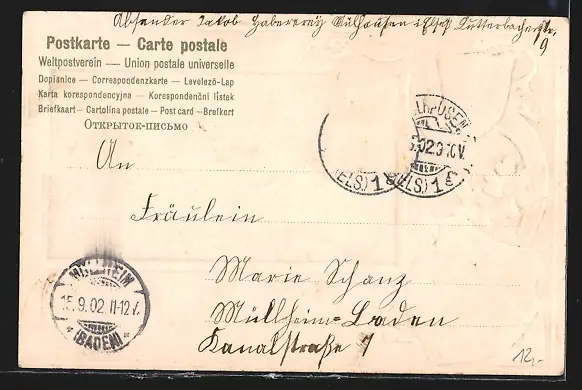 Absender Jakob Haberereÿ Mülhausen i Elsaß Lutterbacherstr.
9
Postkarte — Carte postale
Weltpostverein — Union postale universelle
Dopisnice — Correspondenzkarte — Levelező-Lap
Karta korespondencyjna — Korespondenční lístek
Briefkaart — Cartolina postale — Post card — Brefkort
Открытое-письмо
An
Fräulein
Marie Schanz
Müllheim-Baden
Kanalstraße 7
(ELS.) 1
(ELS.) 1
MÜLLHEIM
15.9.02.11-12V.
* (BADEN) *
12,-